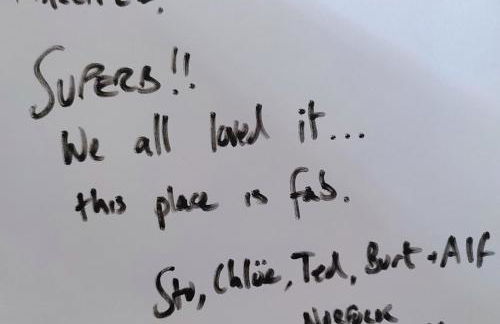 SUPERB!!
We all loved it...
this place is fab.
Stu, Chlöe, Ted, Burt + Alf
NORFOLK